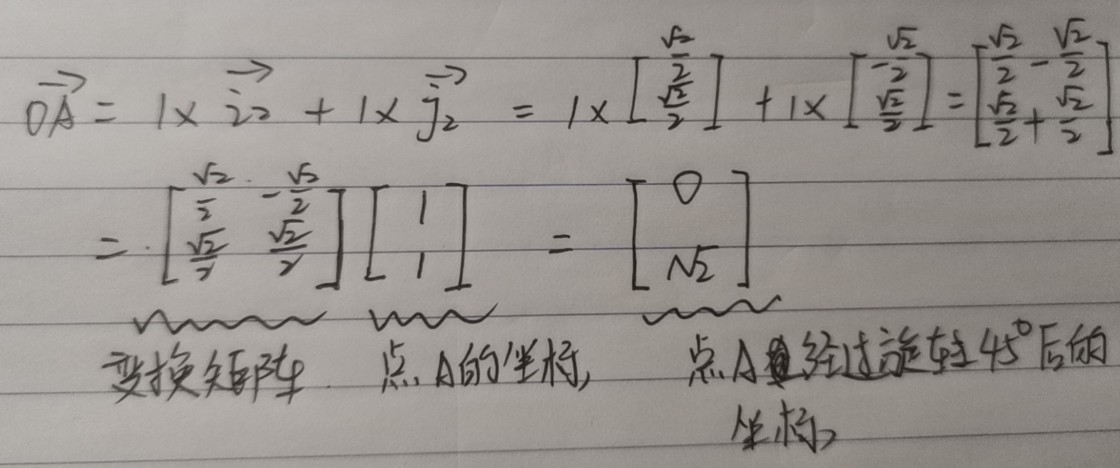 $\overrightarrow{OA} = 1 \times \overrightarrow{i_2} + 1 \times \overrightarrow{j_2} = 1 \times \begin{bmatrix} \frac{\sqrt{2}}{2} \\ \frac{\sqrt{2}}{2} \end{bmatrix} + 1 \times \begin{bmatrix} -\frac{\sqrt{2}}{2} \\ \frac{\sqrt{2}}{2} \end{bmatrix} = \begin{bmatrix} \frac{\sqrt{2}}{2} - \frac{\sqrt{2}}{2} \\ \frac{\sqrt{2}}{2} + \frac{\sqrt{2}}{2} \end{bmatrix}$
$= \begin{bmatrix} \frac{\sqrt{2}}{2} & -\frac{\sqrt{2}}{2} \\ \frac{\sqrt{2}}{2} & \frac{\sqrt{2}}{2} \end{bmatrix} \begin{bmatrix} 1 \\ 1 \end{bmatrix} = \begin{bmatrix} 0 \\ \sqrt{2} \end{bmatrix}$
变换矩阵 点A的坐标, 点A经过旋转45°后的
坐标,